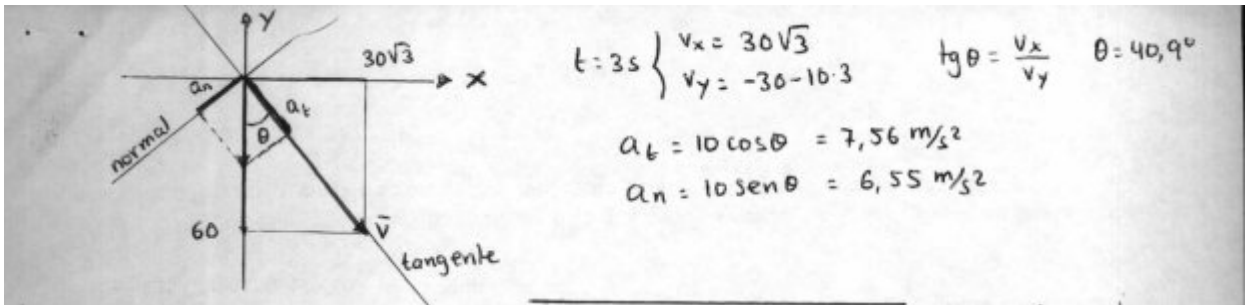 Y
30√3
X
an
at
θ
normal
60
v̄
tangente
t = 3s { vx = 30√3
vy = -30-10·3
tgθ = vx/vy θ = 40,9º
at = 10 cosθ = 7,56 m/s²
an = 10 senθ = 6,55 m/s²